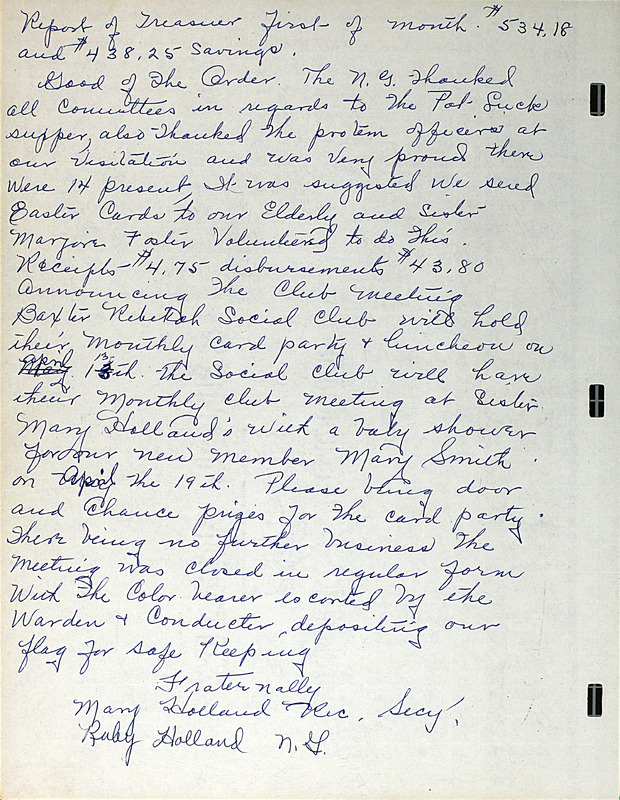 Report of Treasurer First of month. $534.18
and $438.25 Savings.
Good of The Order. The N.G. Thanked
all Committees in regards to The Pot Luck
supper, also Thanked The protem officers at
our Visitation and was Very proud there
Were 14 present, It was suggested We send
Easter Cards to our Elderly and Sister
Marjorie Foster Volunteered to do This.
Receipts $4.75 disbursements $43.80
Announcing The Club Meeting
Baxter Rebekah Social Club will hold
their Monthly card party & luncheon on
April 13th. The Social Club will have
their Monthly club meeting at Sister
Mary Holland's With a baby shower
for our new member Mary Smith
on April the 19th. Please bring door
and Chance prizes for The card party.
There being no further business The
Meeting was closed in regular form
With The Color bearer escorted by the
Warden & Conductor, depositing our
flag for safe Keeping
Fraternally
Mary Holland Rec. Secy.
Ruby Holland N.G.